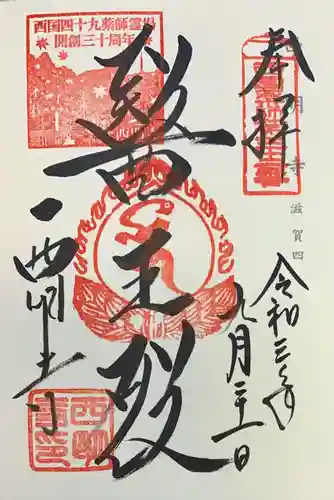 奉拝
西明寺
滋賀四
令和三年
九月二十一日
西国四十九薬師霊場
開創三十周年
醫王殿
西明寺